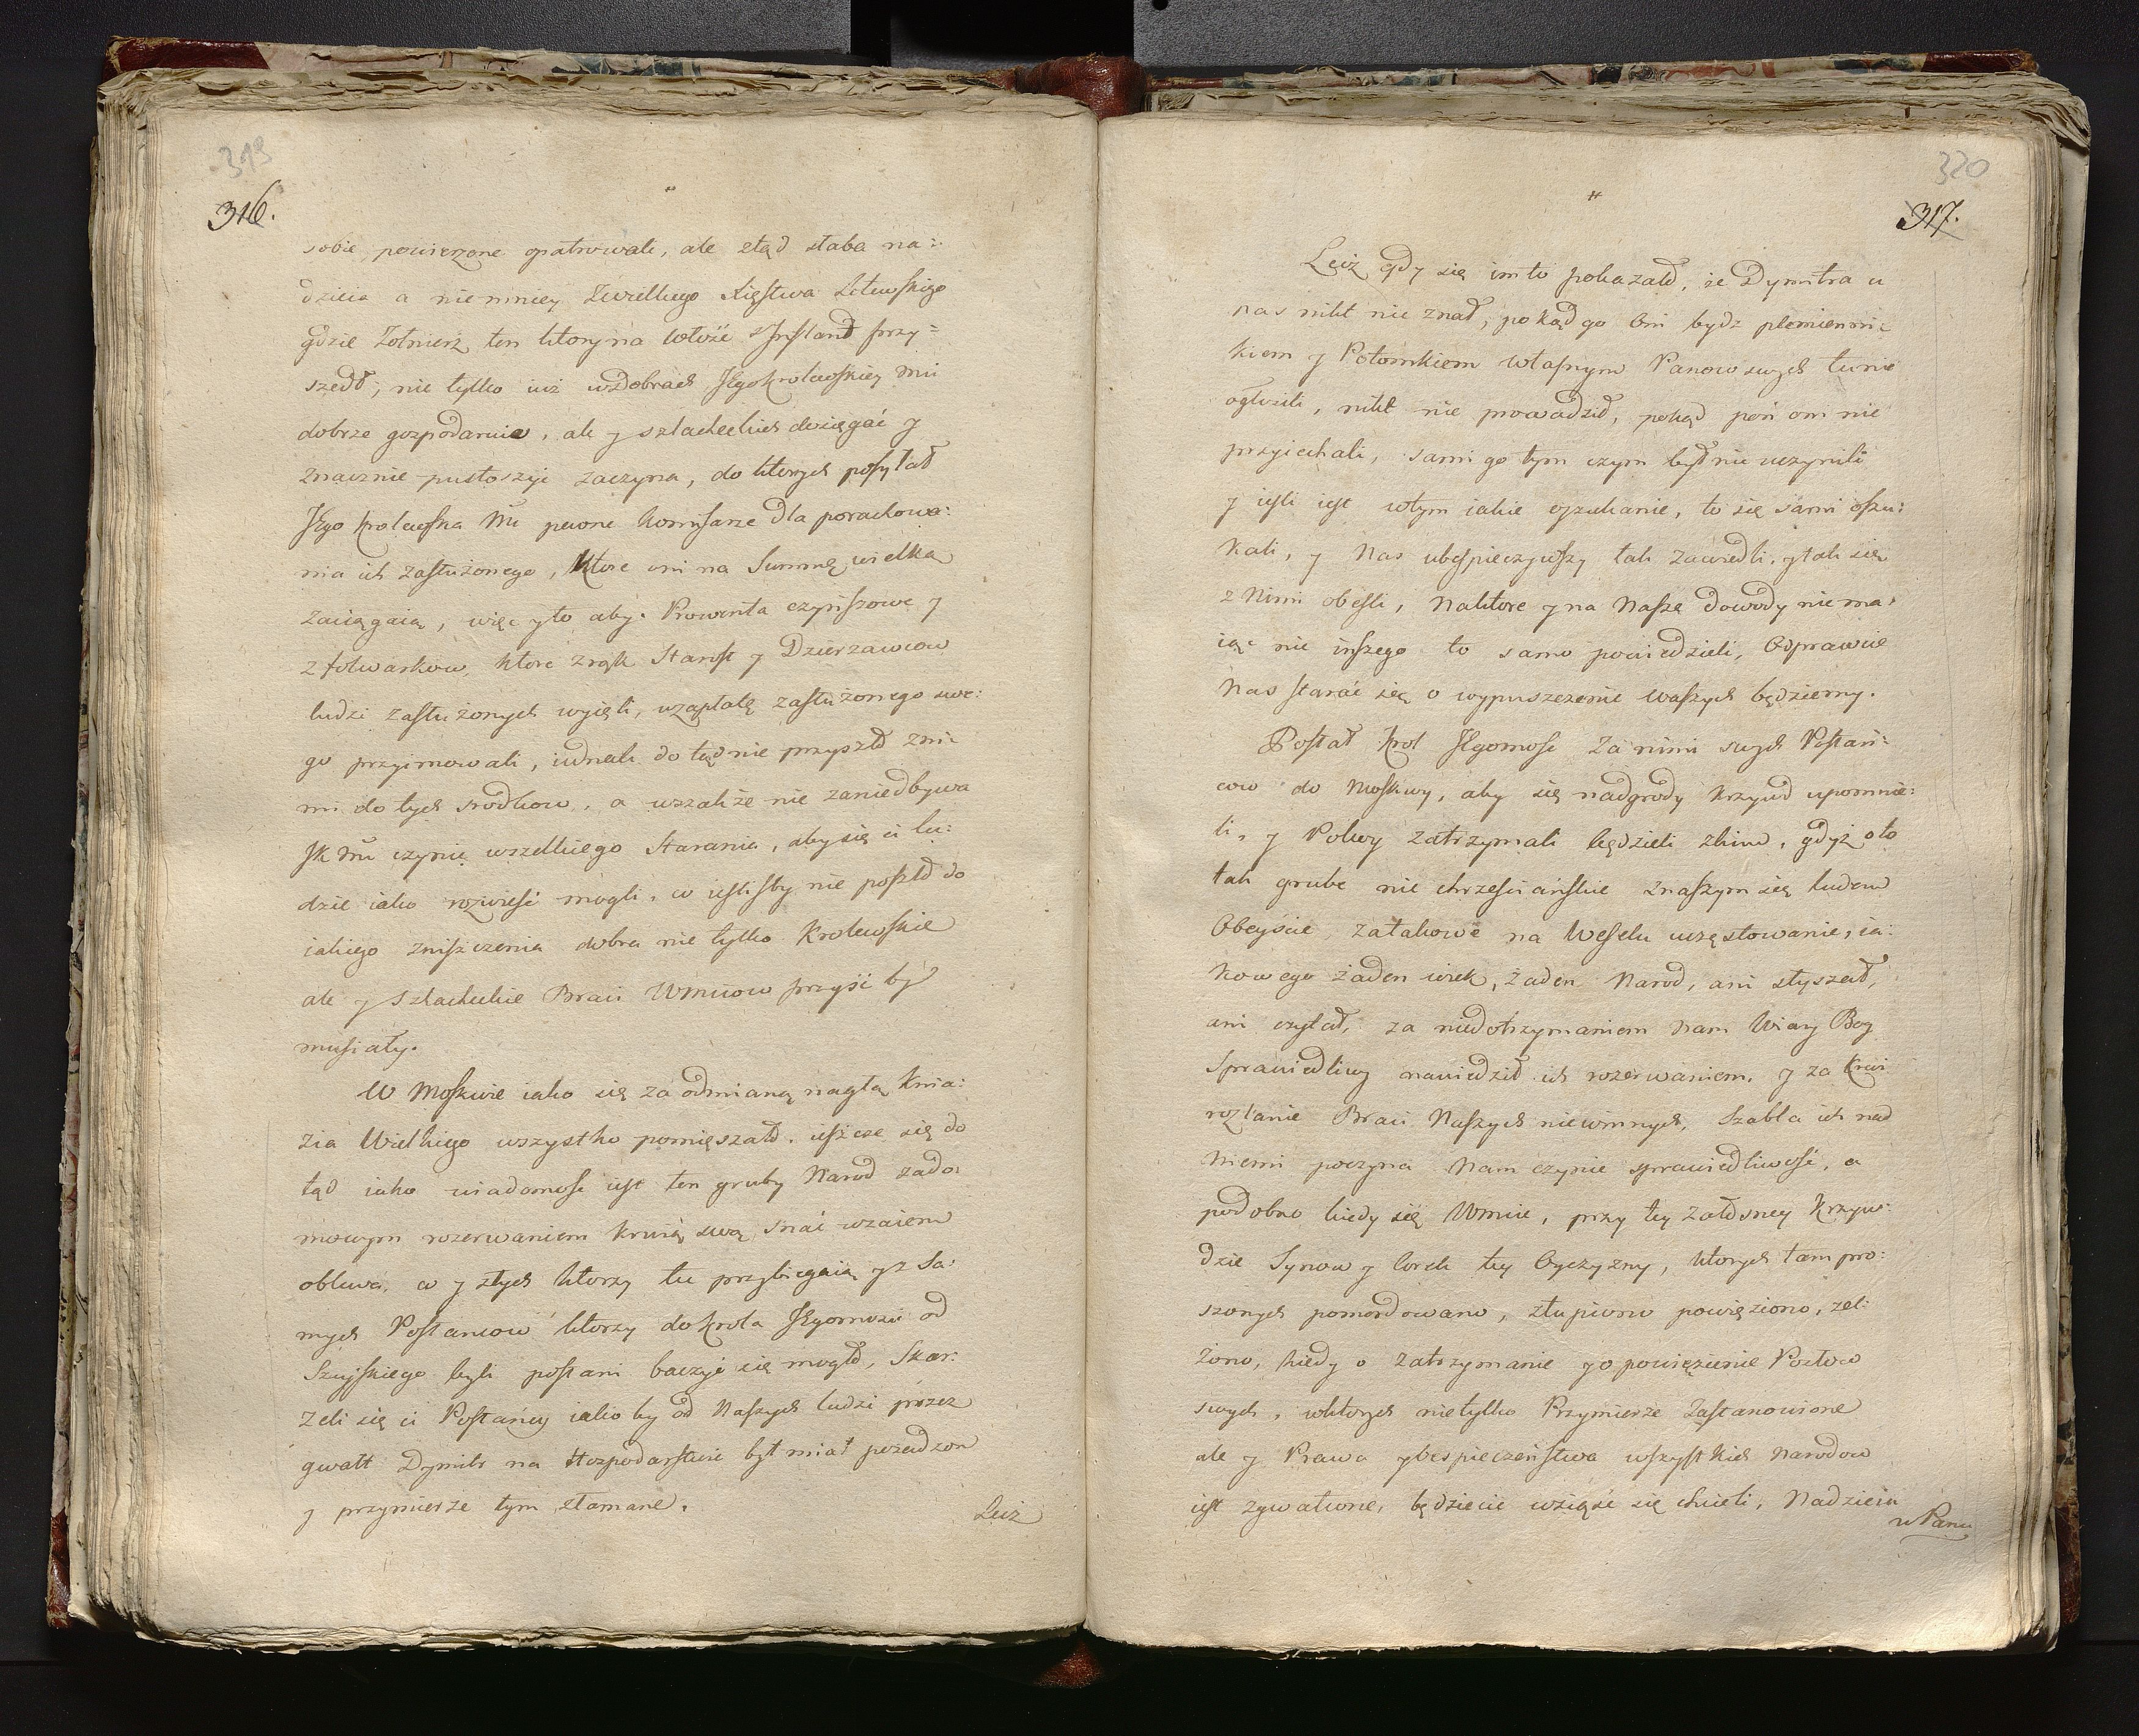 319
316.
sobie powierzone opatrowali, ale ztąd słaba na:
dzieia a niemniey Zwielkiego Xięstwa Litewskiego
gdzie Żołnierz ten ktory na Lotwie z Jnflant przy=
szedł, nie tylko iuż wdobrach JEgoKrolewskiey Mci
dobrze gozpodaruie, ale y szlacheckich dosięgać y
znacznie pustoszyć zaczyna, do ktorych posyłał
JEgo Krolewska Mc pewne Komisarze dla porachowa:
nia ich zasłużonego, Ktore oni na Summę wielką
zaciągaią, więc y to aby Prowenta czynszowe y
z folwarkow, ktore z rąk Starost y Dzierzawcow
ludzi zasłużonych wyięli, wzapłatę zasłużonego swe:
go przyimowali, iednak do tąd nie przyszło zni:
mi do tych srodkow, a wszakże nie zaniedbywa
JK Mc czynić wszelkiego starania, aby się ci lu:
dzie iako rozwieść mogli, w iesliby nie poszło do
iakiego zniszczenia dobra nie tylko Krolewskie
ale y Szlacheckie Braci Wmciow przyść by
musiały.
W Moskwie iako się za odmianą nagłą Knia:
zia Wielkiego wszystko pomięszało, ieszcze się do
tąd iako wiadomość iest ten gruby Narod zado:
mowym rozerwaniem krwią swą snać wzaiem
oblewa, co y z tych ktorzy tu przybiegaią y z sa:
mych Posłancow ktorzy do Krola JEgomosci od
Szuyskiego byli posłani baczyć się mogło, Skar:
żeli się ci Posłańcy iako by od Naszych ludzi przez
gwałt Dymitr na Hozpodarstwie był miał posadzon
y przymierze tym złamane.
Lecz
320
317.
Lecz gdy się im to pokazało, że Dymitra u
nas nikt nie znał, pokąd go Oni bydz plemienni:
kiem y Potomkiem własnym Panow swych tu nie
ogłosili, nikt nie prowadził, pokąd poń oni nie
przyiechali, sami go tym czym był nie uczynili
y iesli iest wtym iakie oszukanie, to się sami oszu:
kali, y Nas ubespieczywszy tak zawiedli, y tak się
z Nimi obeśli, Naktore y na Nasze dowody nie ma:
iąc nic inszego to samo powiedzieli, Odprawcie
Nas starać się o wypuszczenie waszych będziemy.
Posłał Krol JEgomość za nimi swych Posłań:
cow do Moskwy, aby się nadgrody krzywd upomnie:
li, y Polacy zatrzymali będzieli zkim, gdyż o to
tak grube nie chrześciańskie znaszym się ludem
Obeyście, za takowe na Weselu uczęstowanie, ia:
kowego żaden wiek, żaden Narod, ani słyszał,
ani czytał, za niedotrzymaniem Nam Wiary Bog
Sprawiedliwy nawiedził ich rozerwaniem, y za krwi
rozlanie Braci Naszych niewinnych, Szabla ich nad
Niemi poczyna Nam czynic sprawiedliwość, a
podobno kiedy się Wmcie, przy tey żałosney krzyw:
dzie Synow y Corek tey Oyczyzny, ktorych tam pro:
szonych pomordowano, złupiono powięziono, zel:
żono, kiedy o zatrzymanie y o powięzienie Posłow
swych, wktorych nie tylko Przymierze Zastanowione
ale y Prawo ybespieczeństwa wszystkich Narodow
iest zgwałcone, będziecie wziąść się chcieli, Nadzieia
w Panu